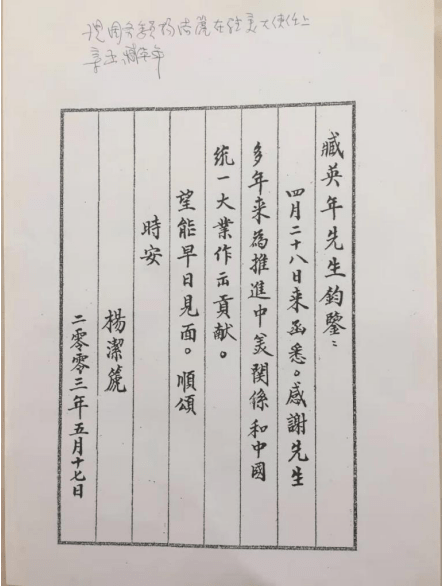 现国务委员杨洁篪在驻美大使任上
臧英年
臧英年先生鈞鑒：
四月二十八日来函悉。感謝先生
多年来為推進中美関係和中國
統一大業作出貢献。
望能早日見面。順頌
時安
楊潔篪
二零零三年五月十七日